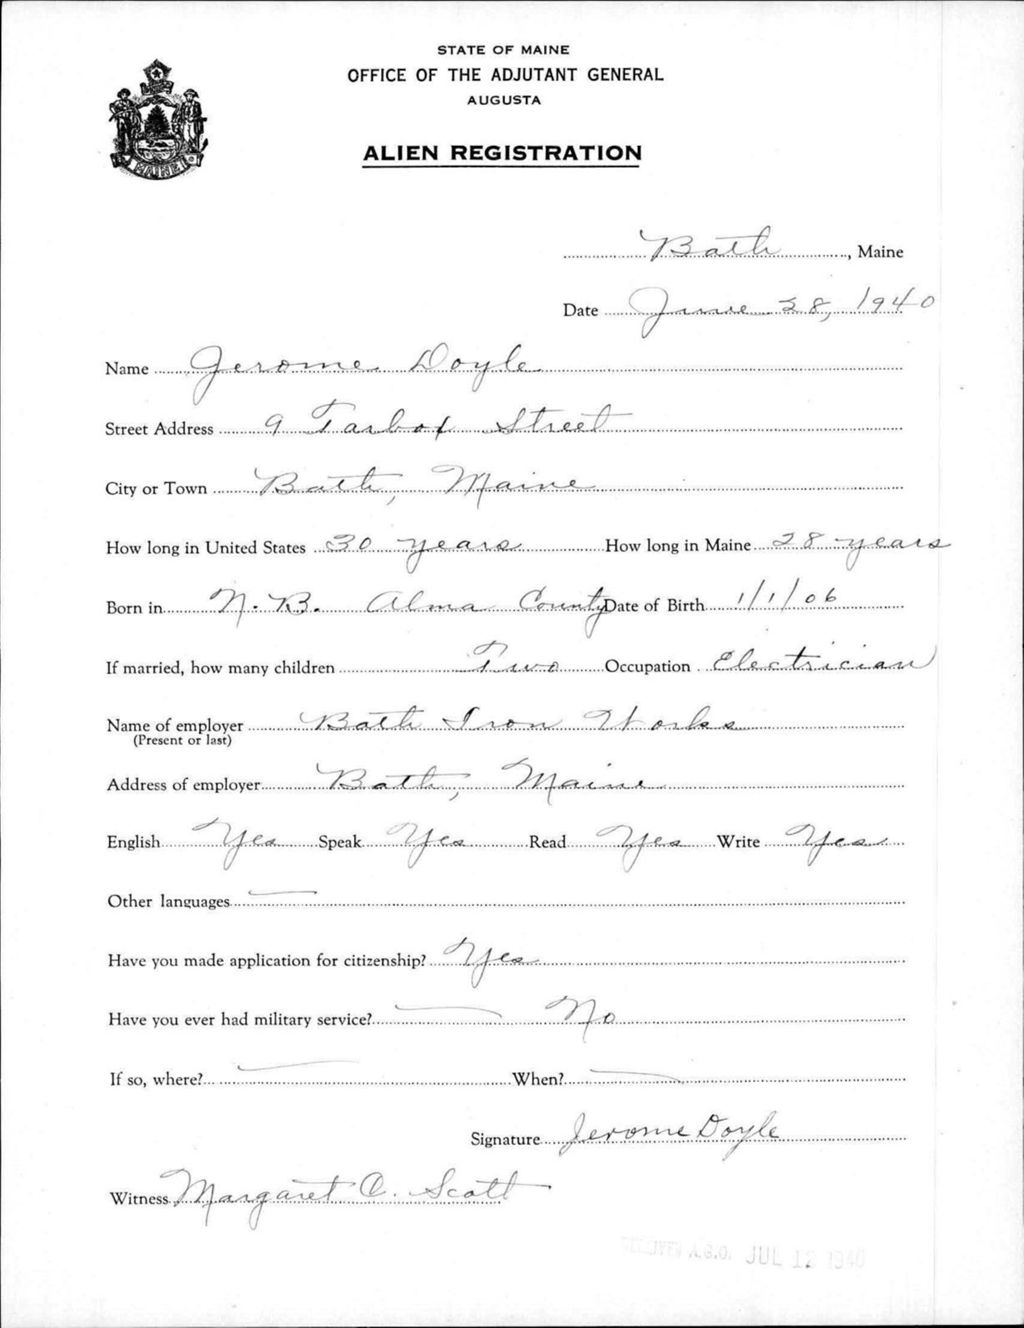 STATE OF MAINE
OFFICE OF THE ADJUTANT GENERAL
AUGUSTA
ALIEN REGISTRATION
MAINE
Bath, Maine
Date June 28, 1940
Name Jerome Doyle
Street Address 9 Tarbox Street
City or Town Bath, Maine
How long in United States 30 years How long in Maine 28 years
Born in N. B. Alma County Date of Birth 1/1/06
If married, how many children Two Occupation Electrician
Name of employer Bath Iron Works
(Present or last)
Address of employer Bath, Maine
English Yes Speak Yes Read Yes Write Yes
Other languages —
Have you made application for citizenship? Yes
Have you ever had military service? — No
If so, where? — When? —
Signature Jerome Doyle
Witness Margaret C. Scott
RECEIVED A.G.O. JUL 12 1940